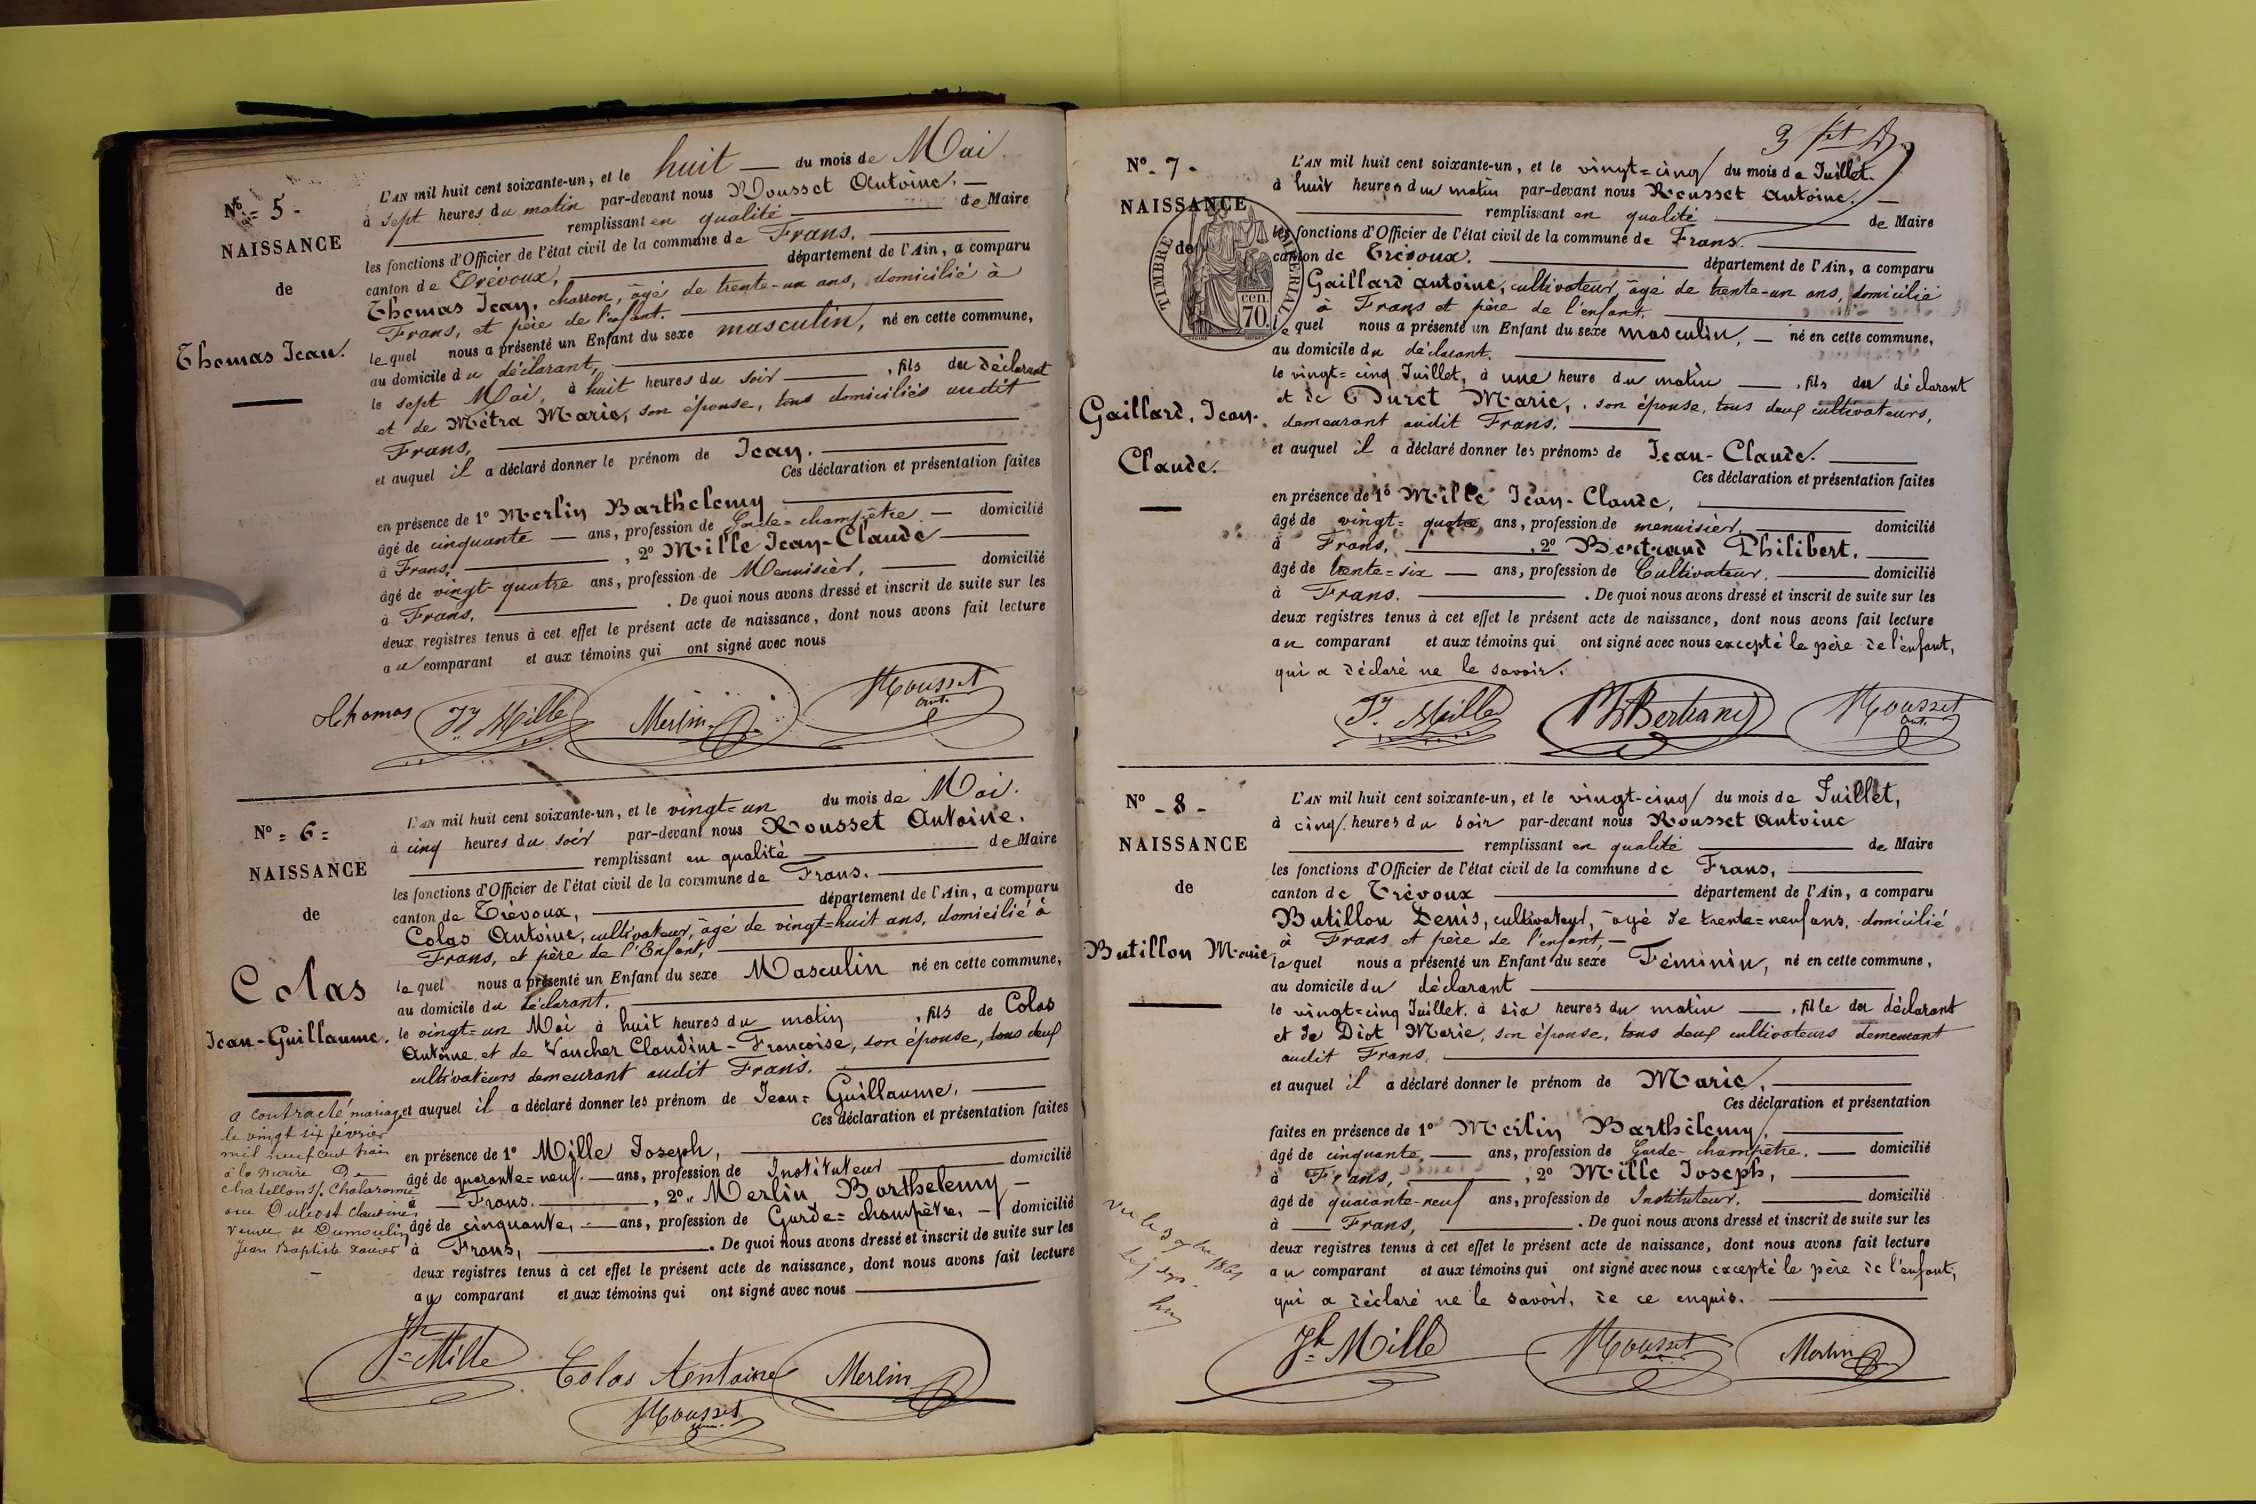 N° = 5 -
NAISSANCE
de
Thomas Jean.
L'AN mil huit cent soixante-un, et le huit — du mois de Mai
à sept heures du matin par-devant nous Rousset Antoine. —
remplissant en qualité de Maire
les fonctions d'Officier de l'état civil de la commune de Frans.
canton de Trévoux, département de l'Ain, a comparu
Thomas Jean, charron, âgé de trente-un ans, domicilié à
Frans, et père de l'enfant.
lequel nous a présenté un Enfant du sexe masculin, né en cette commune,
au domicile du déclarant,
le sept Mai, à huit heures du soir , fils du déclarant
et de Métra Marie, son épouse, tous domiciliés audit
Frans,
et auquel il a déclaré donner le prénom de Jean.
Ces déclaration et présentation faites
en présence de 1° Merlin Barthelemy
âgé de cinquante — ans, profession de Garde=champêtre — domicilié
à Frans, , 2° Mille Jean-Claude
âgé de vingt-quatre ans, profession de Menuisier, domicilié
à Frans, . De quoi nous avons dressé et inscrit de suite sur les
deux registres tenus à cet effet le présent acte de naissance, dont nous avons fait lecture
au comparant et aux témoins qui ont signé avec nous
Thomas Jn Mille Merlin Rousset
Ant.
N° = 6 =
NAISSANCE
de
Colas
Jean-Guillaume.
a contracté mariage
le vingt six février
mil neuf cent trois
à la mairie De
Chatillon s/. Chalaronne
avec Dubost Claudine
veuve de Dumoulin
Jean Baptiste Xavier
L'AN mil huit cent soixante-un, et le vingt=un du mois de Mai.
à cinq heures du soir par-devant nous Rousset Antoine.
remplissant en qualité de Maire
les fonctions d'Officier de l'état civil de la commune de Frans.
canton de Trévoux, département de l'Ain, a comparu
Colas Antoine, cultivateur, âgé de vingt=huit ans, domicilié à
Frans, et père de l'Enfant,
lequel nous a présenté un Enfant du sexe Masculin né en cette commune,
au domicile du déclarant.
le vingt=un Mai à huit heures du matin , fils de Colas
Antoine et de Vaucher Claudine-Francoise, son épouse, tous deux
cultivateurs demeurant audit Frans.
et auquel il a déclaré donner les prénom de Jean=Guillaume.
Ces déclaration et présentation faites
en présence de 1° Mille Joseph,
âgé de quarante=neuf — ans, profession de Instituteur domicilié
à — Frans. , 2° Merlin Barthelemy —
âgé de cinquante, — ans, profession de Garde=champêtre, — domicilié
à Frans, . De quoi nous avons dressé et inscrit de suite sur les
deux registres tenus à cet effet le présent acte de naissance, dont nous avons fait lecture
au comparant et aux témoins qui ont signé avec nous
Jh Mille Colas Antoine Merlin
Rousset
3 fet
N° - 7 -
NAISSANCE
de
TIMBRE IMPERIAL
70. cen
Gaillard, Jean-
Claude.
L'AN mil huit cent soixante-un, et le vingt=cinq du mois de Juillet.
à huit heures du matin par-devant nous Rousset Antoine. —
remplissant en qualité de Maire
les fonctions d'Officier de l'état civil de la commune de Frans.
canton de Trévoux. département de l'Ain, a comparu
Gaillard antoine, cultivateur, âgé de trente-un ans, domicilié
à Frans et père de l'enfant.
lequel nous a présenté un Enfant du sexe masculin, — né en cette commune,
au domicile du déclarant.
le vingt=cinq Juillet, à une heure du matin — , fils du déclarant
et de Duret Marie, son épouse, tous deux cultivateurs,
demeurant audit Frans,
et auquel il a déclaré donner les prénoms de Jean-Claude.
Ces déclaration et présentation faites
en présence de 1° Mille Jean-Claude,
âgé de vingt=quatre ans, profession de menuisier domicilié
à Frans, , 2° Bertrand Philibert.
âgé de trente=six — ans, profession de Cultivateur. domicilié
à Frans. . De quoi nous avons dressé et inscrit de suite sur les
deux registres tenus à cet effet le présent acte de naissance, dont nous avons fait lecture
au comparant et aux témoins qui ont signé avec nous excepté le père de l'enfant,
qui a déclaré ne le savoir.
Jn Mille Ph Bertrand Rousset
Ant.
N° - 8 -
NAISSANCE
de
Butillon Marie
L'AN mil huit cent soixante-un, et le vingt-cinq du mois de Juillet,
à cinq heures du soir par-devant nous Rousset Antoine
remplissant en qualité de Maire
les fonctions d'Officier de l'état civil de la commune de Frans,
canton de Trévoux département de l'Ain, a comparu
Butillon Denis, cultivateur, âgé de trente=neuf ans, domicilié
à Frans et père de l'enfant, —
lequel nous a présenté un Enfant du sexe Féminin, né en cette commune,
au domicile du déclarant
le vingt=cinq Juillet. à six heures du matin — , fille du déclarant
et de Diot Marie, son épouse, tous deux cultivateurs demeurant
audit Frans,
et auquel il a déclaré donner le prénom de Marie,
Ces déclaration et présentation
faites en présence de 1° Merlin Barthélemy,
âgé de cinquante, — ans, profession de Garde-champêtre, — domicilié
à Frans, , 2° Mille Joseph,
âgé de quarante-neuf ans, profession de Instituteur. domicilié
à — Frans, . De quoi nous avons dressé et inscrit de suite sur les
deux registres tenus à cet effet le présent acte de naissance, dont nous avons fait lecture
au comparant et aux témoins qui ont signé avec nous excepté le père de l'enfant,
qui a déclaré ne le savoir, de ce enquis.
Jh Mille Rousset Merlin